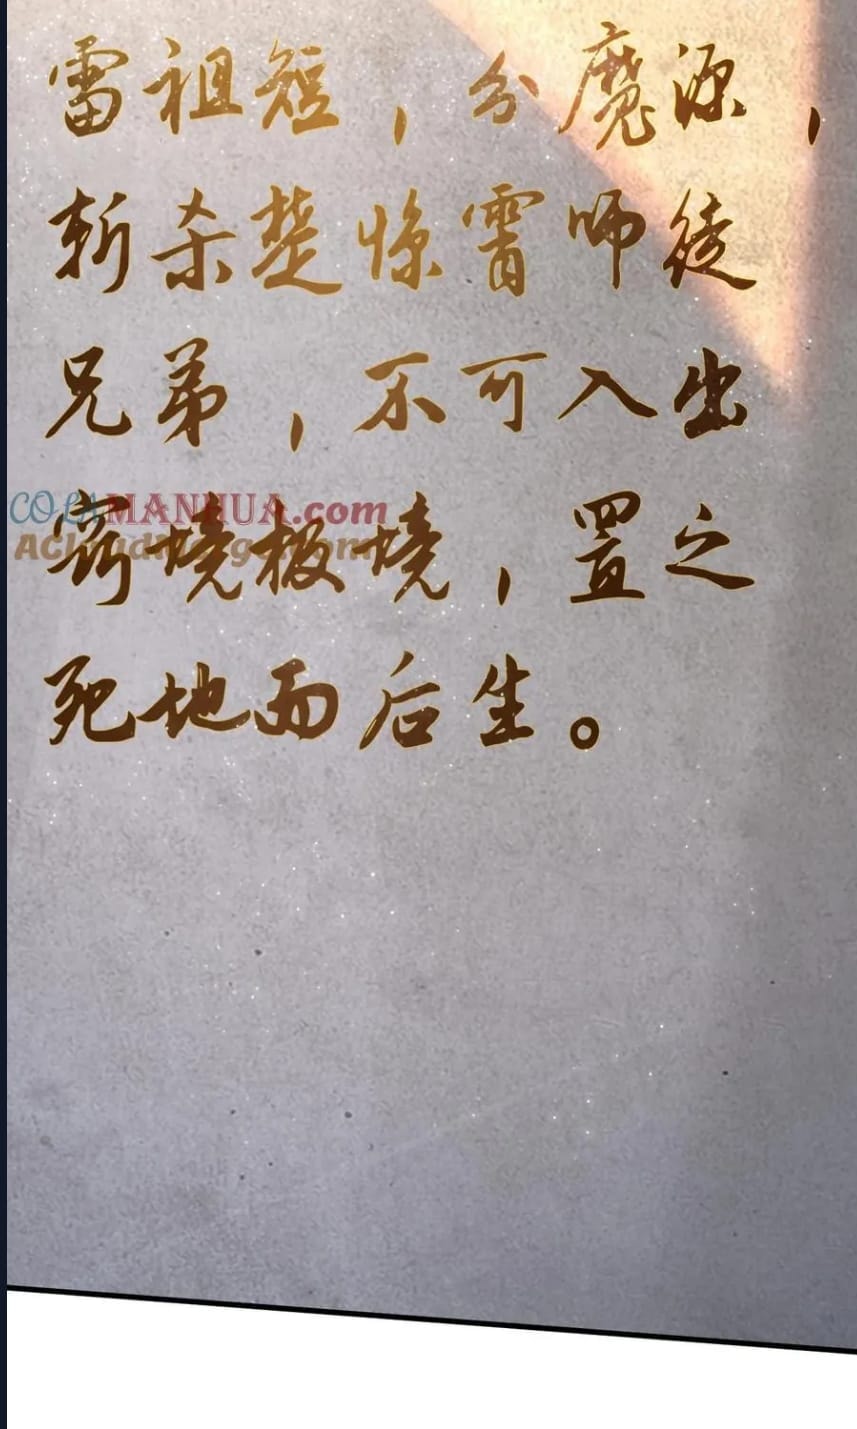 雷祖短，分魔源，
斩杀楚惊霄师徒
兄弟，不可入出
窍境板境，置之
COLAMANHUA.com
死地而后生。